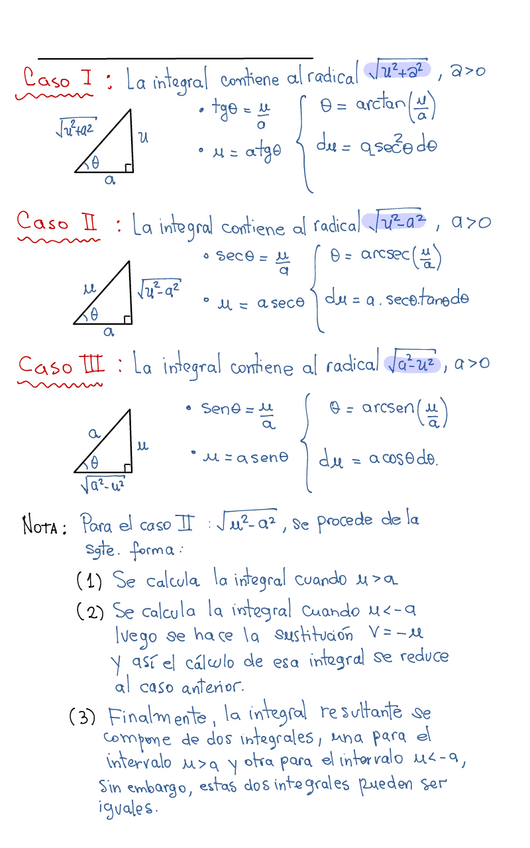 Caso I : La integral contiene al radical √(u²+a²) , a>0
• tgθ = u/a
θ = arctan(u/a)
√(u²+a²)
u
θ
a
• u = atgθ
du = a sec²θ dθ
Caso II : La integral contiene al radical √(u²-a²) , a>0
• secθ = u/a
θ = arcsec(u/a)
u
√(u²-a²)
θ
a
• u = a secθ
du = a . secθ.tanθdθ
Caso III : La integral contiene al radical √(a²-u²) , a>0
• senθ = u/a
θ = arcsen(u/a)
a
u
θ
√(a²-u²)
• u = a senθ
du = a cosθ dθ.
NOTA: Para el caso II : √(u²-a²) , se procede de la
sgte. forma:
(1) Se calcula la integral cuando u>a
(2) Se calcula la integral cuando u<-a
luego se hace la sustitución V = -u
y así el cálculo de esa integral se reduce
al caso anterior.
(3) Finalmente, la integral resultante se
compone de dos integrales, una para el
intervalo u>a y otra para el intervalo u<-a,
sin embargo, estas dos integrales pueden ser
iguales.